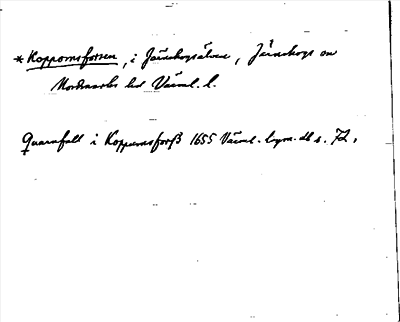 * Koppomsforsen, i Järnskogsälven, Järnskogs sn
Nordmarks hd Värml. l.
Quarnfall i Koppomsforß 1655 Värml. hym. db s. 72.